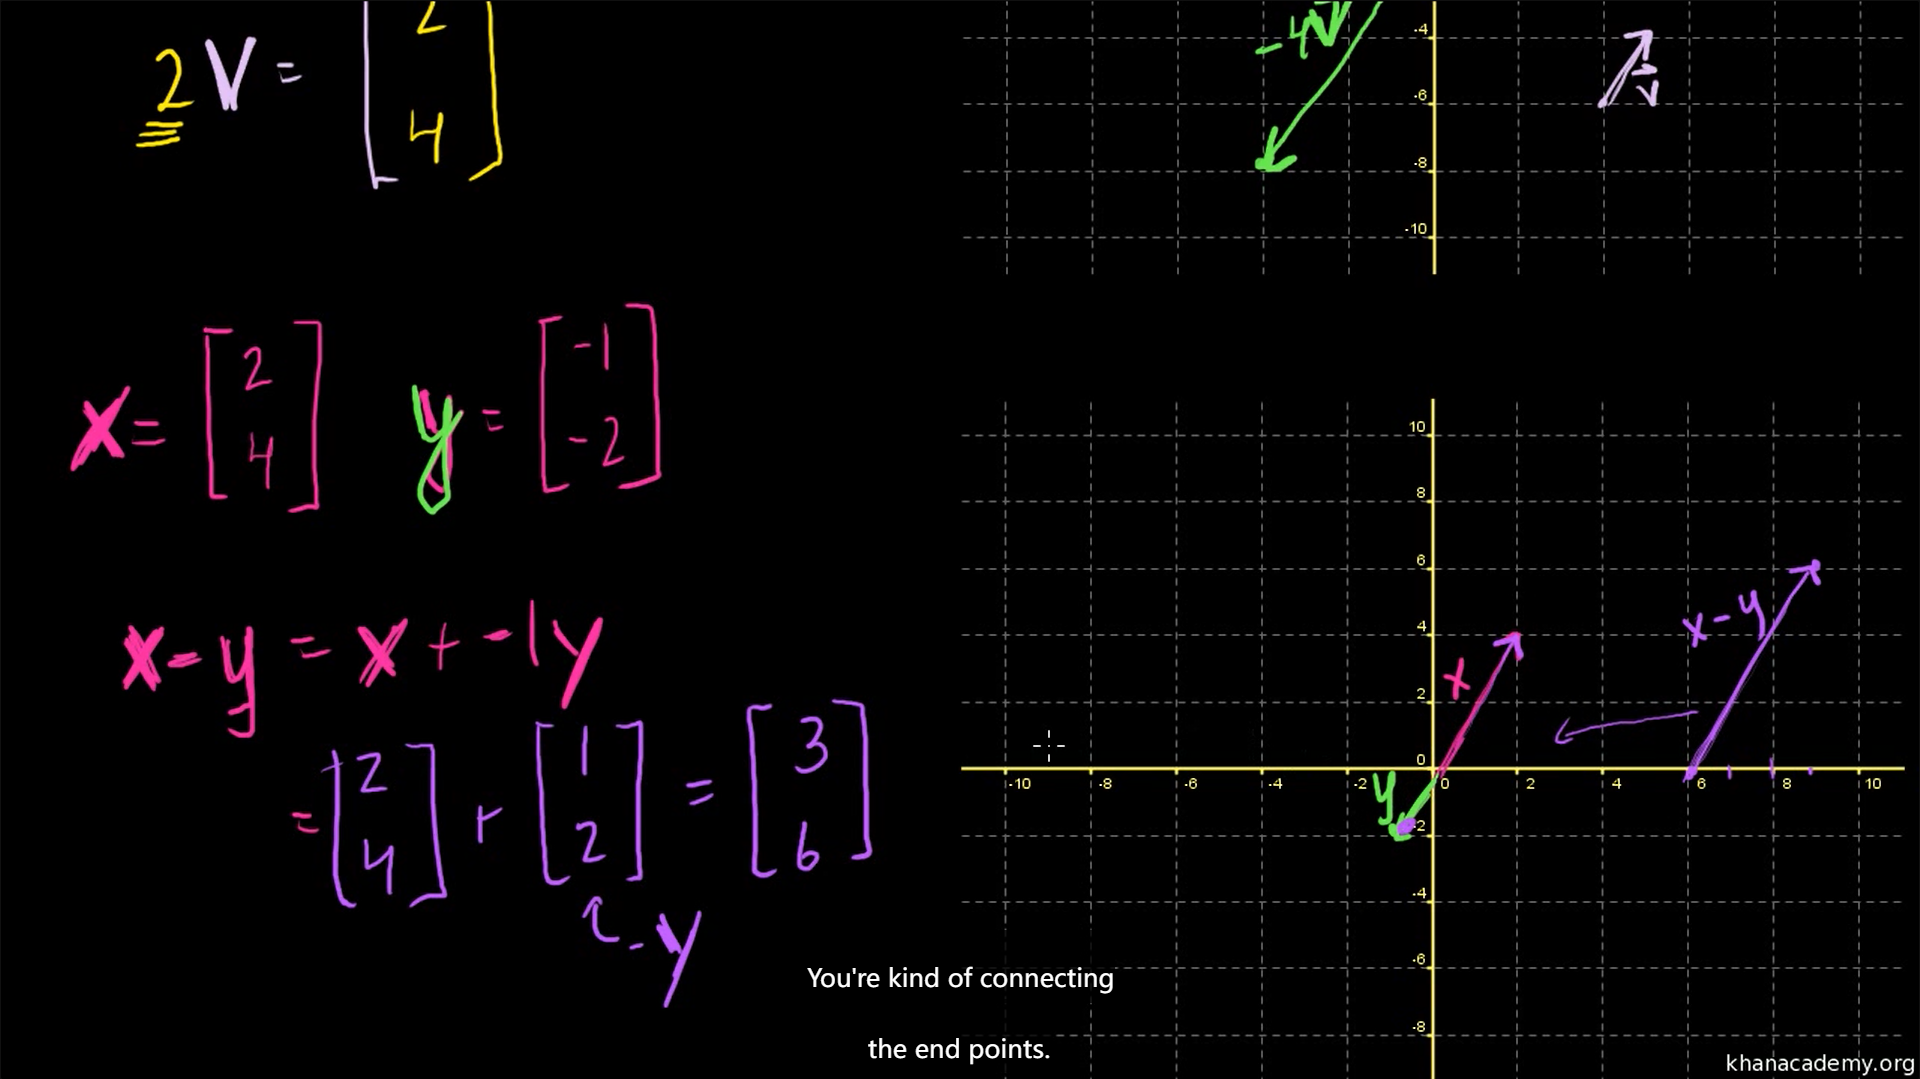 2 v = [2 4]
-4v
v
-4
-6
-8
-10
x = [2 4] y = [-1 -2]
x - y = x + -1y
= [2 4] + [1 2] = [3 6]
-y
10
8
6
4
2
0
-10 -8 -6 -4 -2 0 2 4 6 8 10
-2
-4
-6
-8
x
y
x - y
You're kind of connecting
the end points.
khanacademy.org